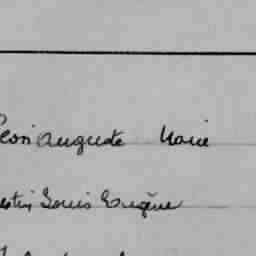 Léon Auguste Marie
Louis Eugène